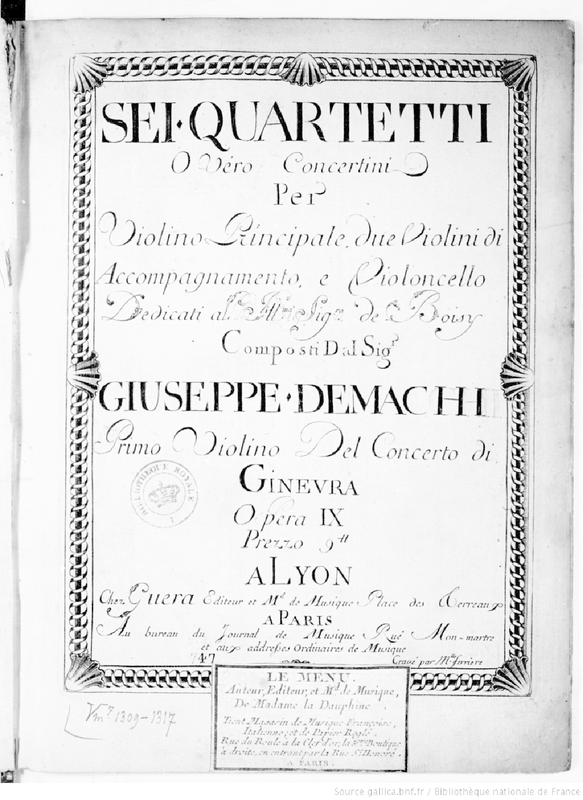 SEI · QUARTETTI
O Véro Concertini
Per
Violino Principale, due Violini di
Accompagnamento, e Violoncello
Dedicati al Sig.re de Boisy
Composti Dal Sig.r
GIUSEPPE · DEMACHI
Primo Violino Del Concerto di
GINEVRA
Opera IX
Prezzo 9tt
A LYON
Chez Guera Editeur et Md. de Musique Place des Terreaux
A PARIS
Au bureau du Journal de Musique Rué Mon-martre
et aux addresses Ordinaires de Musique
747
Gravé par
BIBLIOTHEQUE ROYALE
LE MENU.
Auteur, Editeur, et Md. de Musique,
De Madame la Dauphine.
Tient Magasin de Musique Françoise,
Italienne, et de Papier Reglé.
Rue du Roule à la Clef d'or, la Boutique
à droite, en entrant par la Rue St. Honoré.
A PARIS.
Vm7. 1309-1317
Source gallica.bnf.fr / Bibliothèque nationale de France